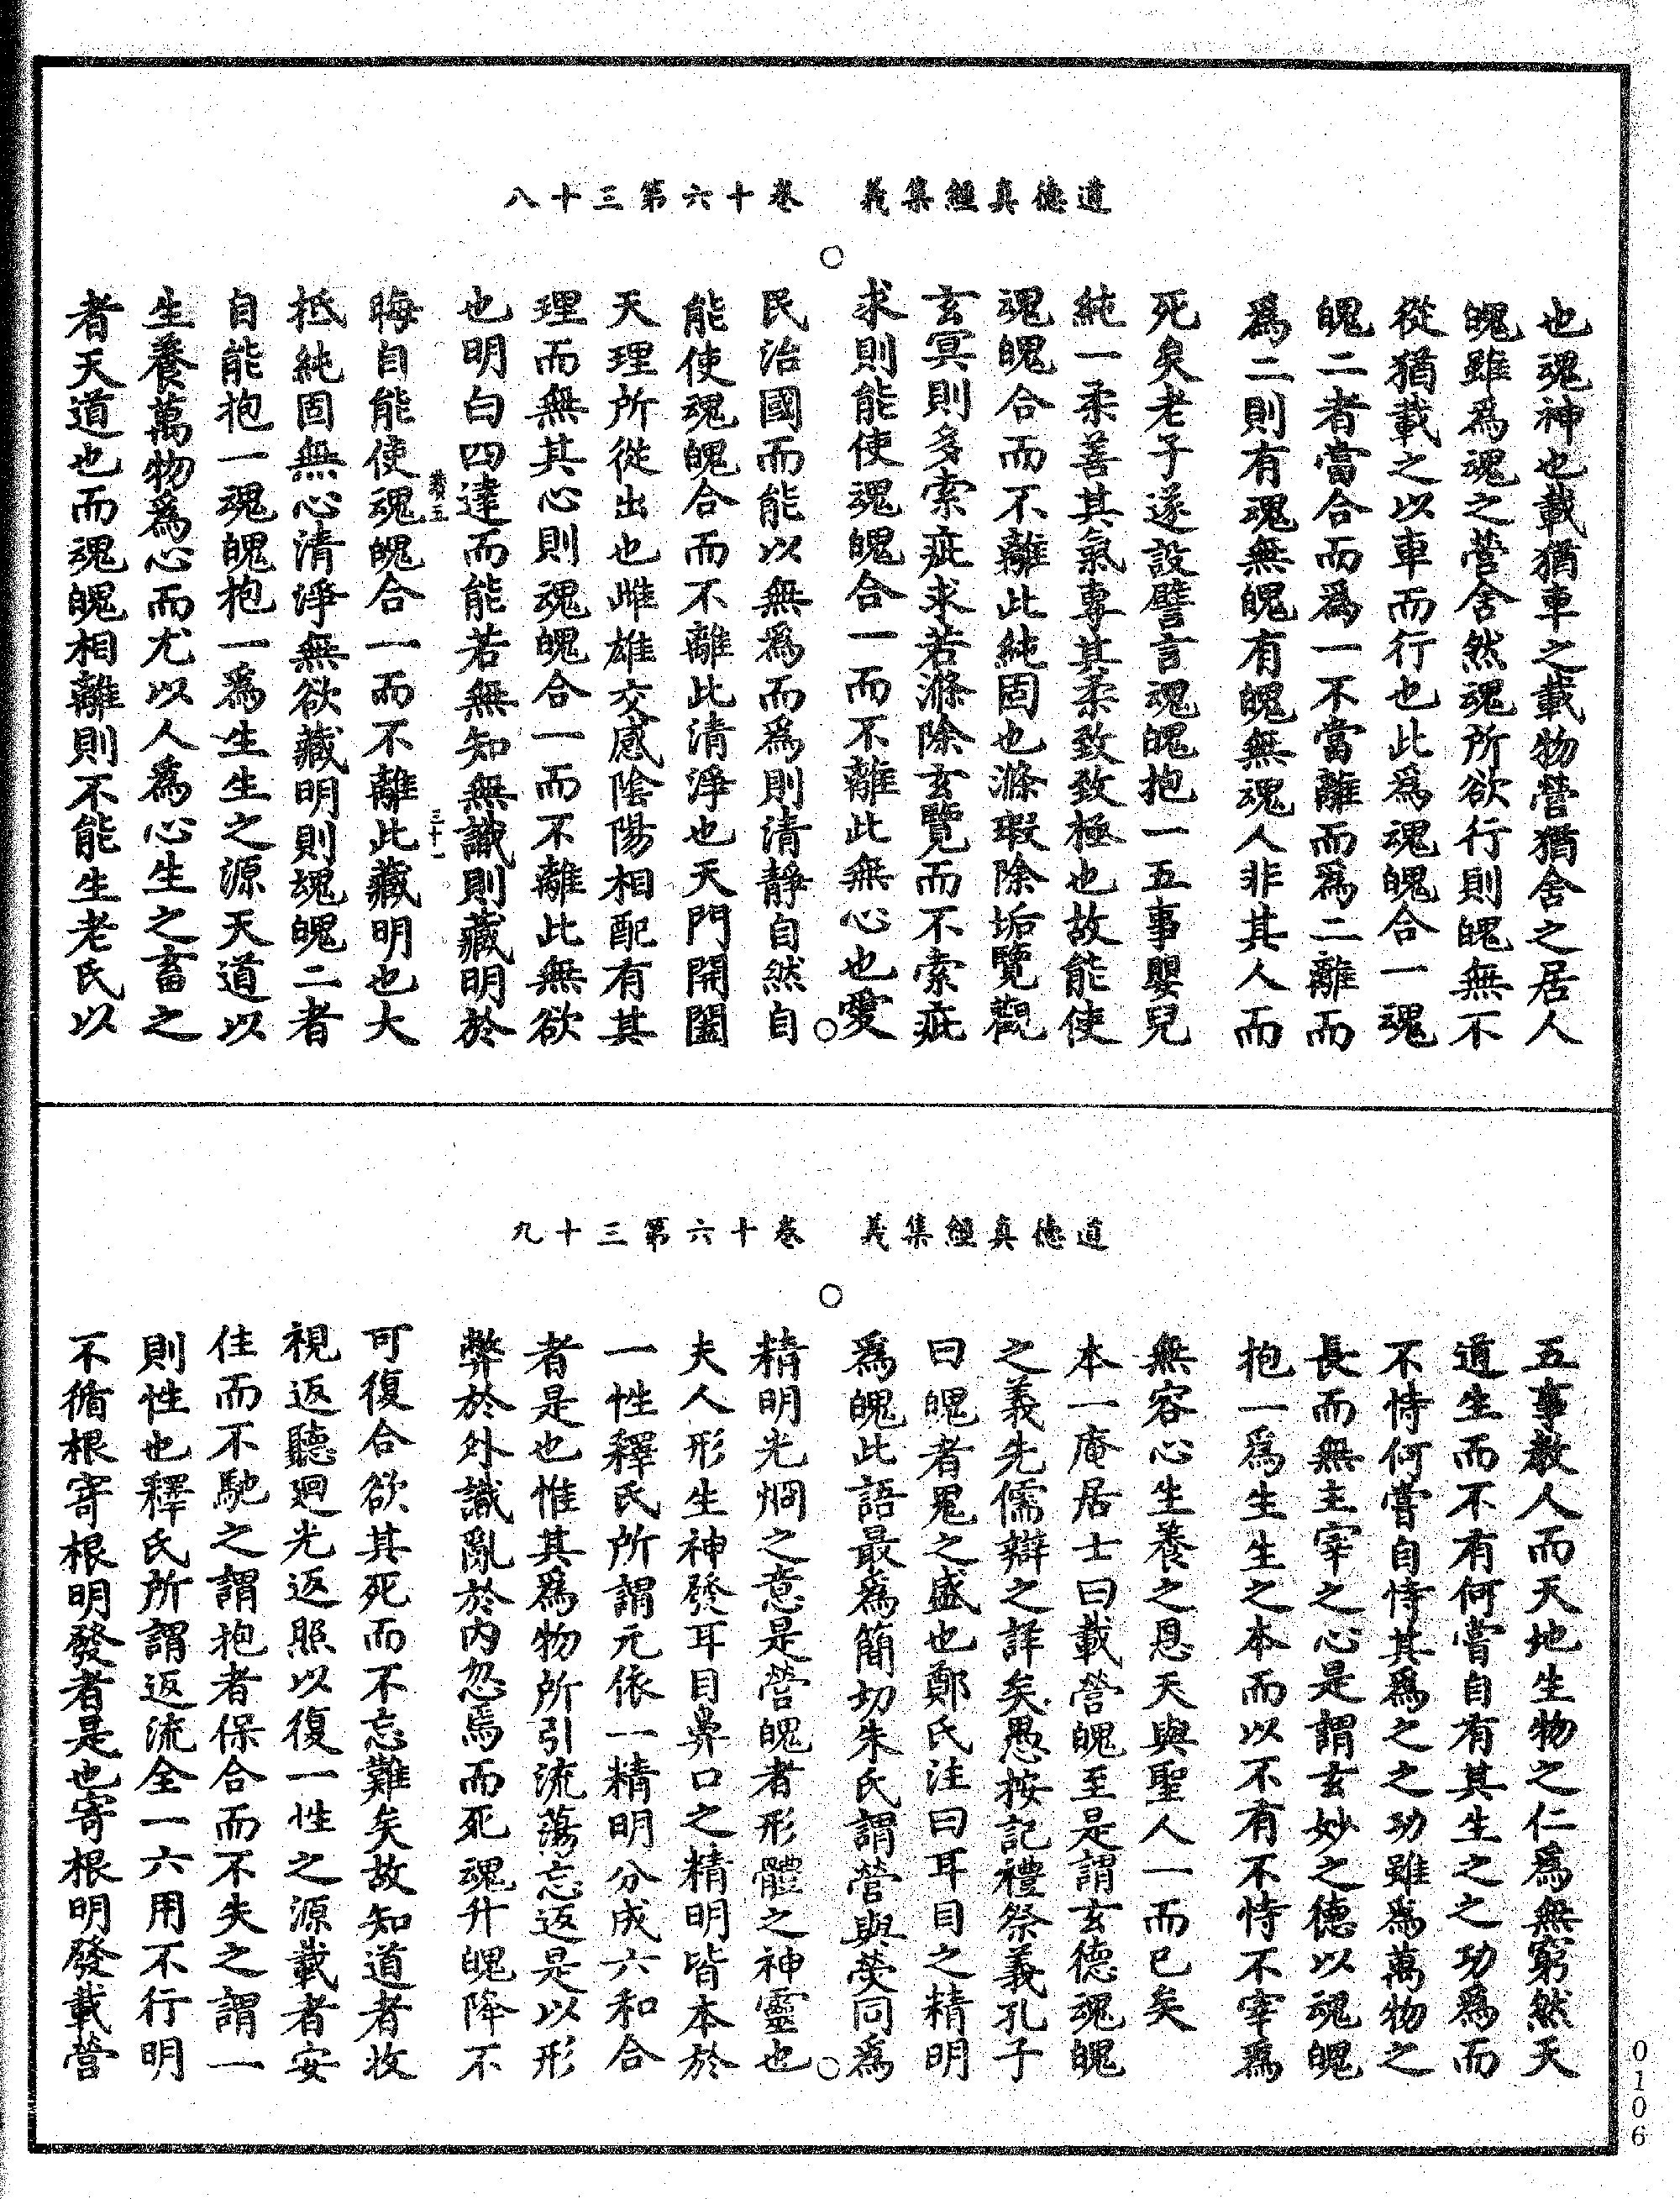 道德真經集義　卷十六第三十八
也魂神也載猶車之載物營猶舍之居人
魄雖爲魂之營舍然魂所欲行則魄無不
從猶載之以車而行也此爲魂魄合一魂
魄二者當合而爲一不當離而爲二離而
爲二則有魂無魄有魄無魂人非其人而
死矣老子遂設譬言魂魄抱一五事嬰兒
純一柔善其氣專其柔致致極也故能使
魂魄合而不離此純固也滌瑕除垢覽觀
玄冥則多索疵求若滌除玄覽而不索疵
求則能使魂魄合一而不離此無心也愛
民治國而能以無爲而爲則清靜自然自
能使魂魄合而不離此清淨也天門開闔
天理所從出也雌雄交感陰陽相配有其
理而無其心則魂魄合一而不離此無欲
也明白四達而能若無知無識則藏明於
三十一
晦自能使魂魄合一而不離此藏明也大
抵純固無心清淨無欲藏明則魂魄二者
自能抱一魂魄抱一爲生生之源天道以
生養萬物爲心而尤以人爲心生之畜之
者天道也而魂魄相離則不能生老氏以
道德真經集義　卷十六第三十九
五事教人而天地生物之仁爲無窮然天
道生而不有何嘗自有其生之之功爲而
不恃何嘗自恃其爲之之功雖爲萬物之
長而無主宰之心是謂玄妙之德以魂魄
抱一爲生生之本而以不有不恃不宰爲
無容心生養之恩天與聖人一而已矣
本一庵居士曰載營魄至是謂玄德魂魄
之義先儒辯之詳矣愚桉記禮祭義孔子
曰魄者鬼之盛也鄭氏注曰耳目之精明
爲魄此語最爲簡切朱氏謂營與熒同爲
精明光烱之意是營魄者形體之神靈也
夫人形生神發耳目鼻口之精明皆本於
一性釋氏所謂元依一精明分成六和合
者是也惟其爲物所引流蕩忘返是以形
弊於外識亂於內忽焉而死魂升魄降不
可復合欲其死而不忘難矣故知道者收
視返聽廻光返照以復一性之源載者安
住而不馳之謂抱者保合而不失之謂一
則性也釋氏所謂返流全一六用不行明
不循根寄根明發者是也寄根明發載營
0106